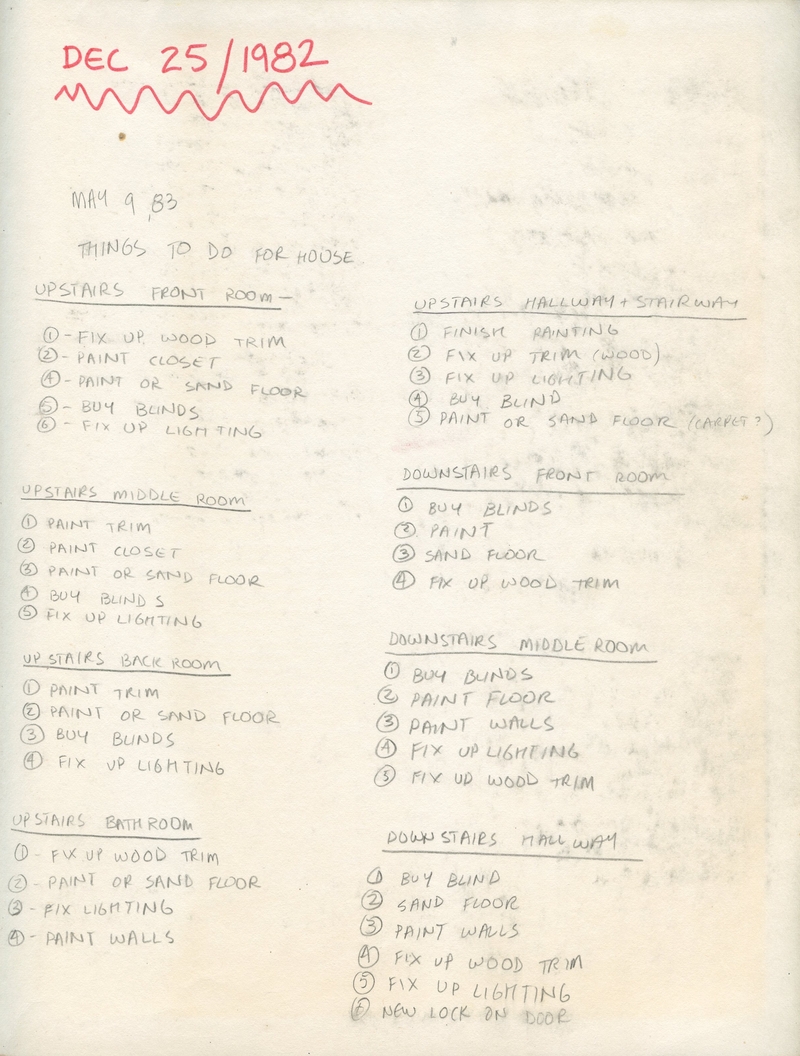 DEC 25/1982
MAY 9, 83
THINGS TO DO FOR HOUSE
UPSTAIRS FRONT ROOM —
① - FIX UP WOOD TRIM
② - PAINT CLOSET
④ - PAINT OR SAND FLOOR
⑤ - BUY BLINDS
⑥ - FIX UP LIGHTING
UPSTAIRS MIDDLE ROOM
① PAINT TRIM
② PAINT CLOSET
③ PAINT OR SAND FLOOR
④ BUY BLINDS
⑤ FIX UP LIGHTING
UPSTAIRS BACK ROOM
① PAINT TRIM
② PAINT OR SAND FLOOR
③ BUY BLINDS
④ FIX UP LIGHTING
UPSTAIRS BATHROOM
① - FIX UP WOOD TRIM
② - PAINT OR SAND FLOOR
③ - FIX LIGHTING
④ - PAINT WALLS
UPSTAIRS HALLWAY + STAIRWAY
① FINISH PAINTING
② FIX UP TRIM (WOOD)
③ FIX UP LIGHTING
④ BUY BLIND
⑤ PAINT OR SAND FLOOR (CARPET?)
DOWNSTAIRS FRONT ROOM
① BUY BLINDS
② PAINT
③ SAND FLOOR
④ FIX UP WOOD TRIM
DOWNSTAIRS MIDDLE ROOM
① BUY BLINDS
② PAINT FLOOR
③ PAINT WALLS
④ FIX UP LIGHTING
⑤ FIX UP WOOD TRIM
DOWNSTAIRS HALLWAY
① BUY BLIND
② SAND FLOOR
③ PAINT WALLS
④ FIX UP WOOD TRIM
⑤ FIX UP LIGHTING
⑥ NEW LOCK ON DOOR